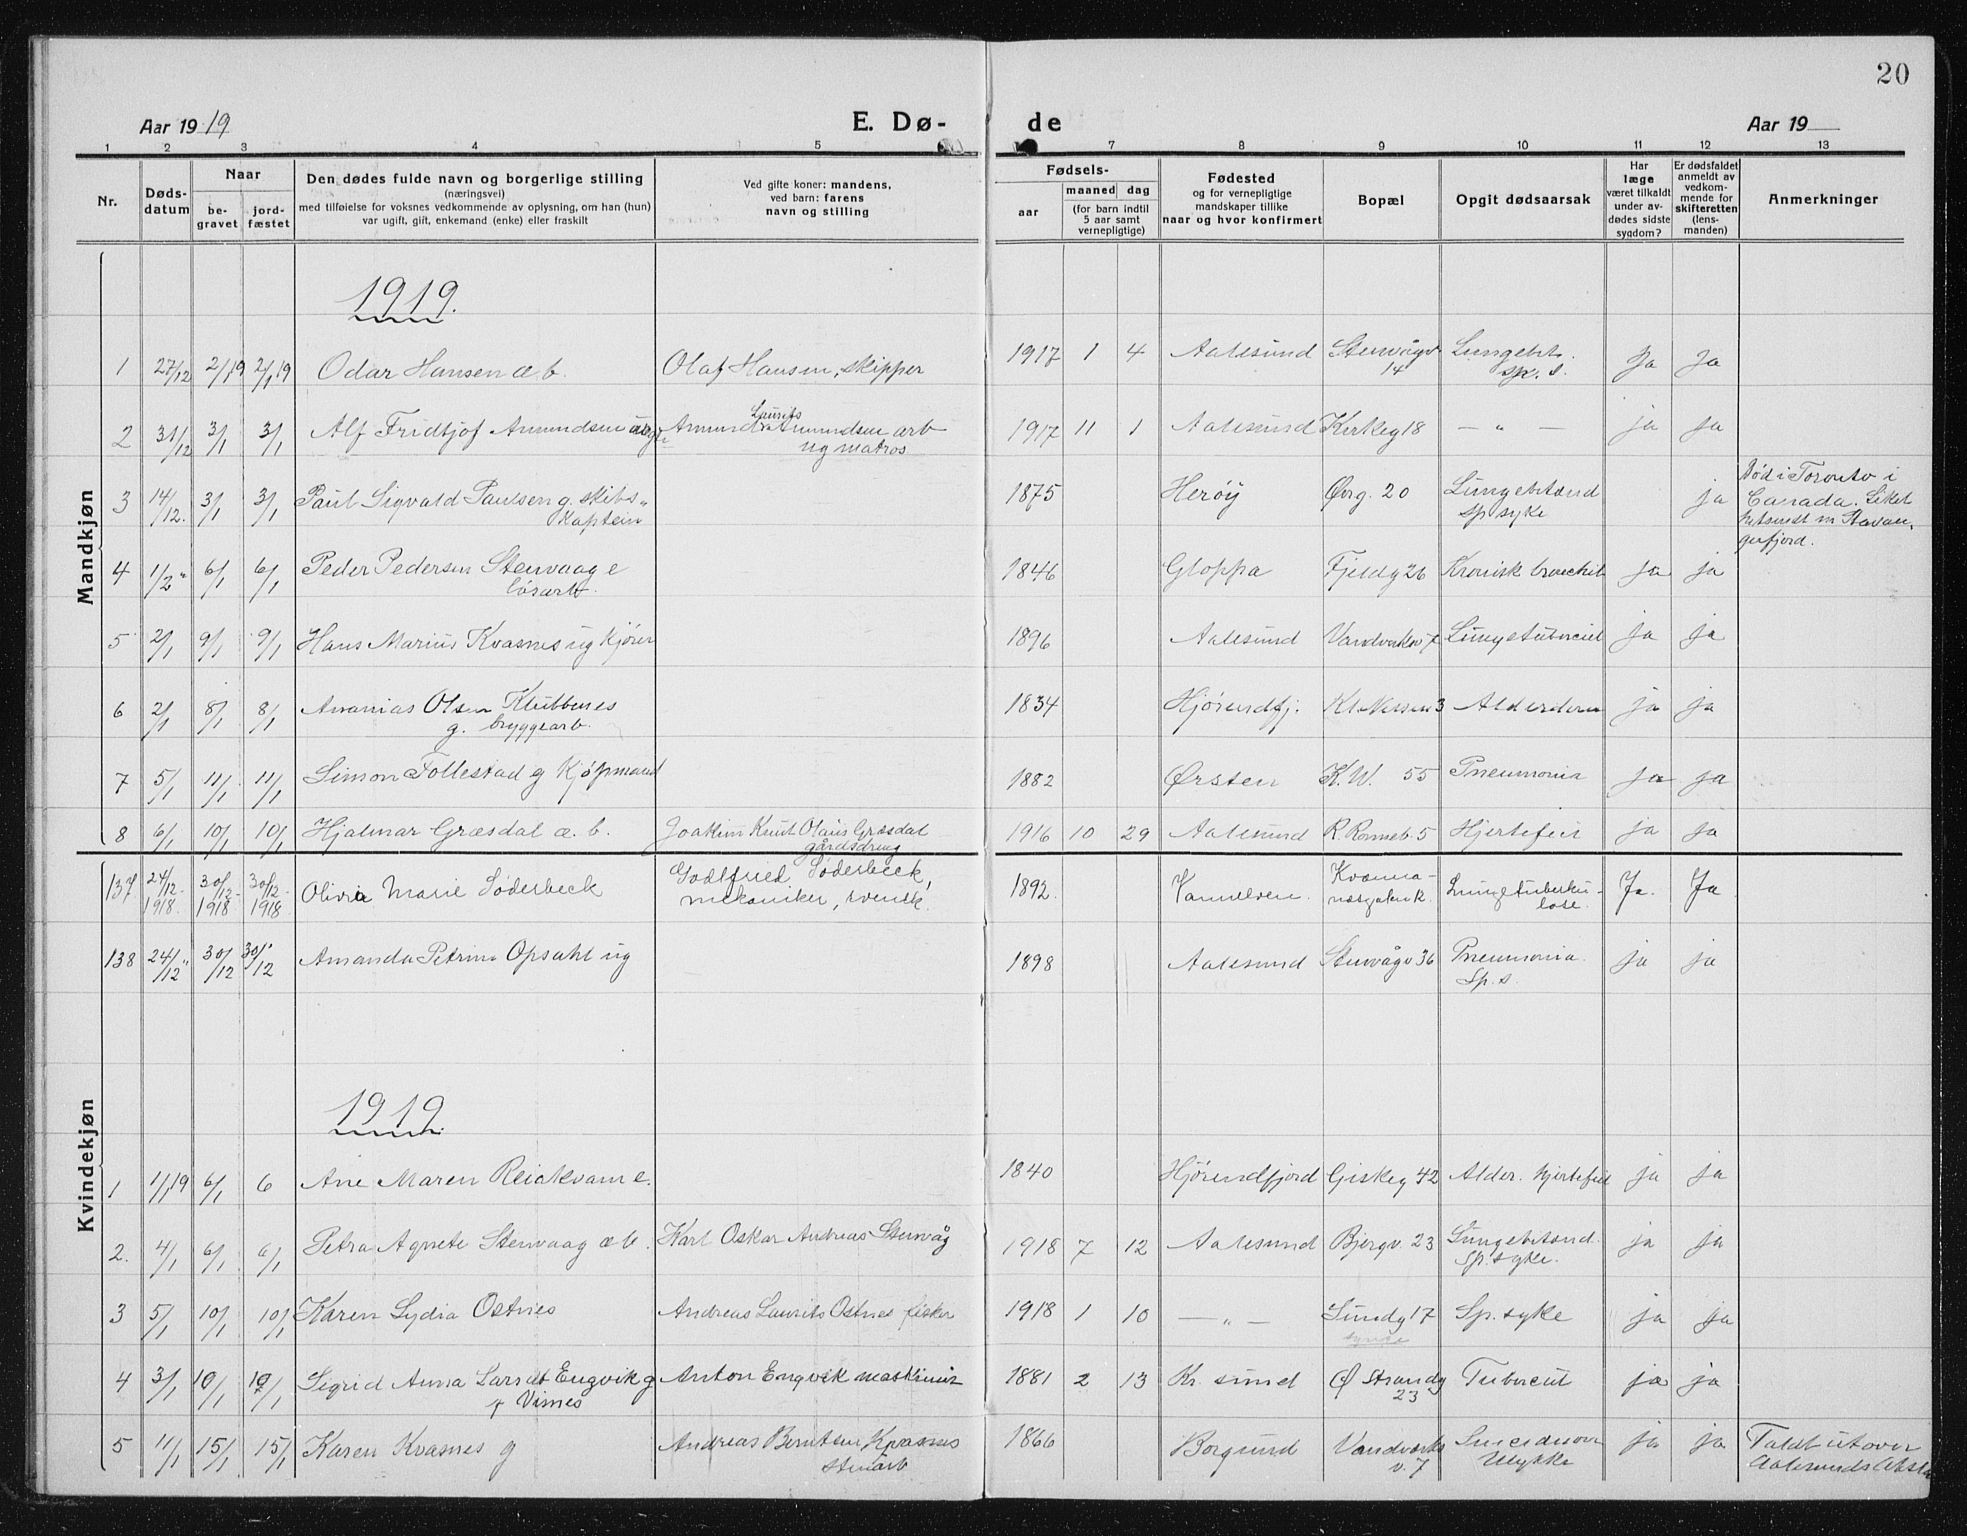 20
Aar 1919 E. Dø- de Aar 19
1 2 3 4 5 7 8 9 10 11 12 13
Nr. Døds-datum Naar begravet jordfæstet Den dødes fulde navn og borgerlige stilling (næringsvei) med tilføielse for voksnes vedkommende av oplysning, om han (hun) var ugift, gift, enkemand (enke) eller fraskilt Ved gifte koner: mandens, ved barn: farens navn og stilling Fødsels- aar maaned dag (for barn indtil 5 aar samt vernepligtige) Fødested og for vernepligtige mandskaper tillike naar og hvor konfirmert Bopæl Opgit dødsaarsak Har læge været tilkaldt under avdødes sidste sygdom? Er dødsfaldet anmeldt av vedkommende for skifteretten (lensmanden) Anmerkninger
Mandkjøn
1919.
1 27/12 2/1 19 2/1 19 Odar Hansen æ b. Olaf Hansen, skipper 1917 1 4 Aalesund Stenvågv 14 Lungebet. sp. s. Ja Ja
2 31/12 3/1 3/1 Alf Fridtjof Amundsen Amund Laurits Amundsen arb ug matros 1917 11 1 Aalesund Kirkeg 18 — " — ja ja
3 14/12. 3/1 3/1 Paul Sigvald Paulsen g. skibs„ kaptein 1875 Herøy Øvrg. 20 Lungebetænd sp syke ja Død i Toronto i
Canada. Liket
hitsendt m Stavan„
gerfjord.
4 1/2 " 6/1 6/1 Peder Pedersen Stenvaag e løsarb. 1846 Gloppa Fjeldg 26 Kronisk bronchit ja ja
5 2/1 9/1 9/1 Hans Marius Kvasnes ug kjører 1896 Aalesund Vandverksv 7 Lungetubercul ja ja
6 2/1 8/1 8/1 Ananias Olsen Klubbenes g. bryggearb. 1834 Hjørundfj. Kl. Nersen 3 Alderdom ja ja
7 5/1 11/1 11/1 Simon Follestad g Kjøpmand 1882 Ørsten K. W. 55 Pneumonia ja ja
8 6/1 10/1 10/1 Hjalmar Græsdal æ. b. Joakim Knut Olaus Græsdal gårdsdreng 1916 10 29 Aalesund R. Rønneb. 5 Hjertefeil ja ja
Kvindekjøn
137 24/12-1918. 30/12-1918 30/12-1918 Olivia Marie Söderbeck Godtfried Söderbeck, mekaniker, svensk. 1892. Vannelven. Kvænna-næsgaten K. Lungetuberku-lose. Ja. Ja
138 24/12 " 30/12 30/12 Amanda Petrine Opsahl ug 1898 Aalesund Stenvågv 36 Pneumonia. Sp. s. ja ja
1919.
1 1/1 19 6/1 6 Ane Maren Reiakvam e. 1840 Hjørundfjord Giskeg 42 Alder. hjertefeil ja ja
2. 4/1 6/1 6/1 Petra Agnete Stenvaag æ b. Karl Oskar Andreas Stenvåg 1918 7 12 Aalesund Bjergv. 23 Lungebetænd. Sp. syke. ja ja
3 5/1 10/1 10/1 Karen Lydia Ostnes Andreas Laurits Ostnes fisker 1918 1 10 — „ — Sundg 17 Sp. syke ja ja
4 3/1 10/1 10/1 Sigrid Anna Larsdt Engvik g f Visnes Anton Engvik maskinist 1881 2 13 Kr. sund Ø Strandg 23 Tubercul ja ja
5 11/1 15/1 15/1 Karen Kvasnes g Andreas Berntsen Kvasnes stenarb 1866 Borgund Vandverks v. 7 Ulykke ja ja Faldt utover
Aalesunds